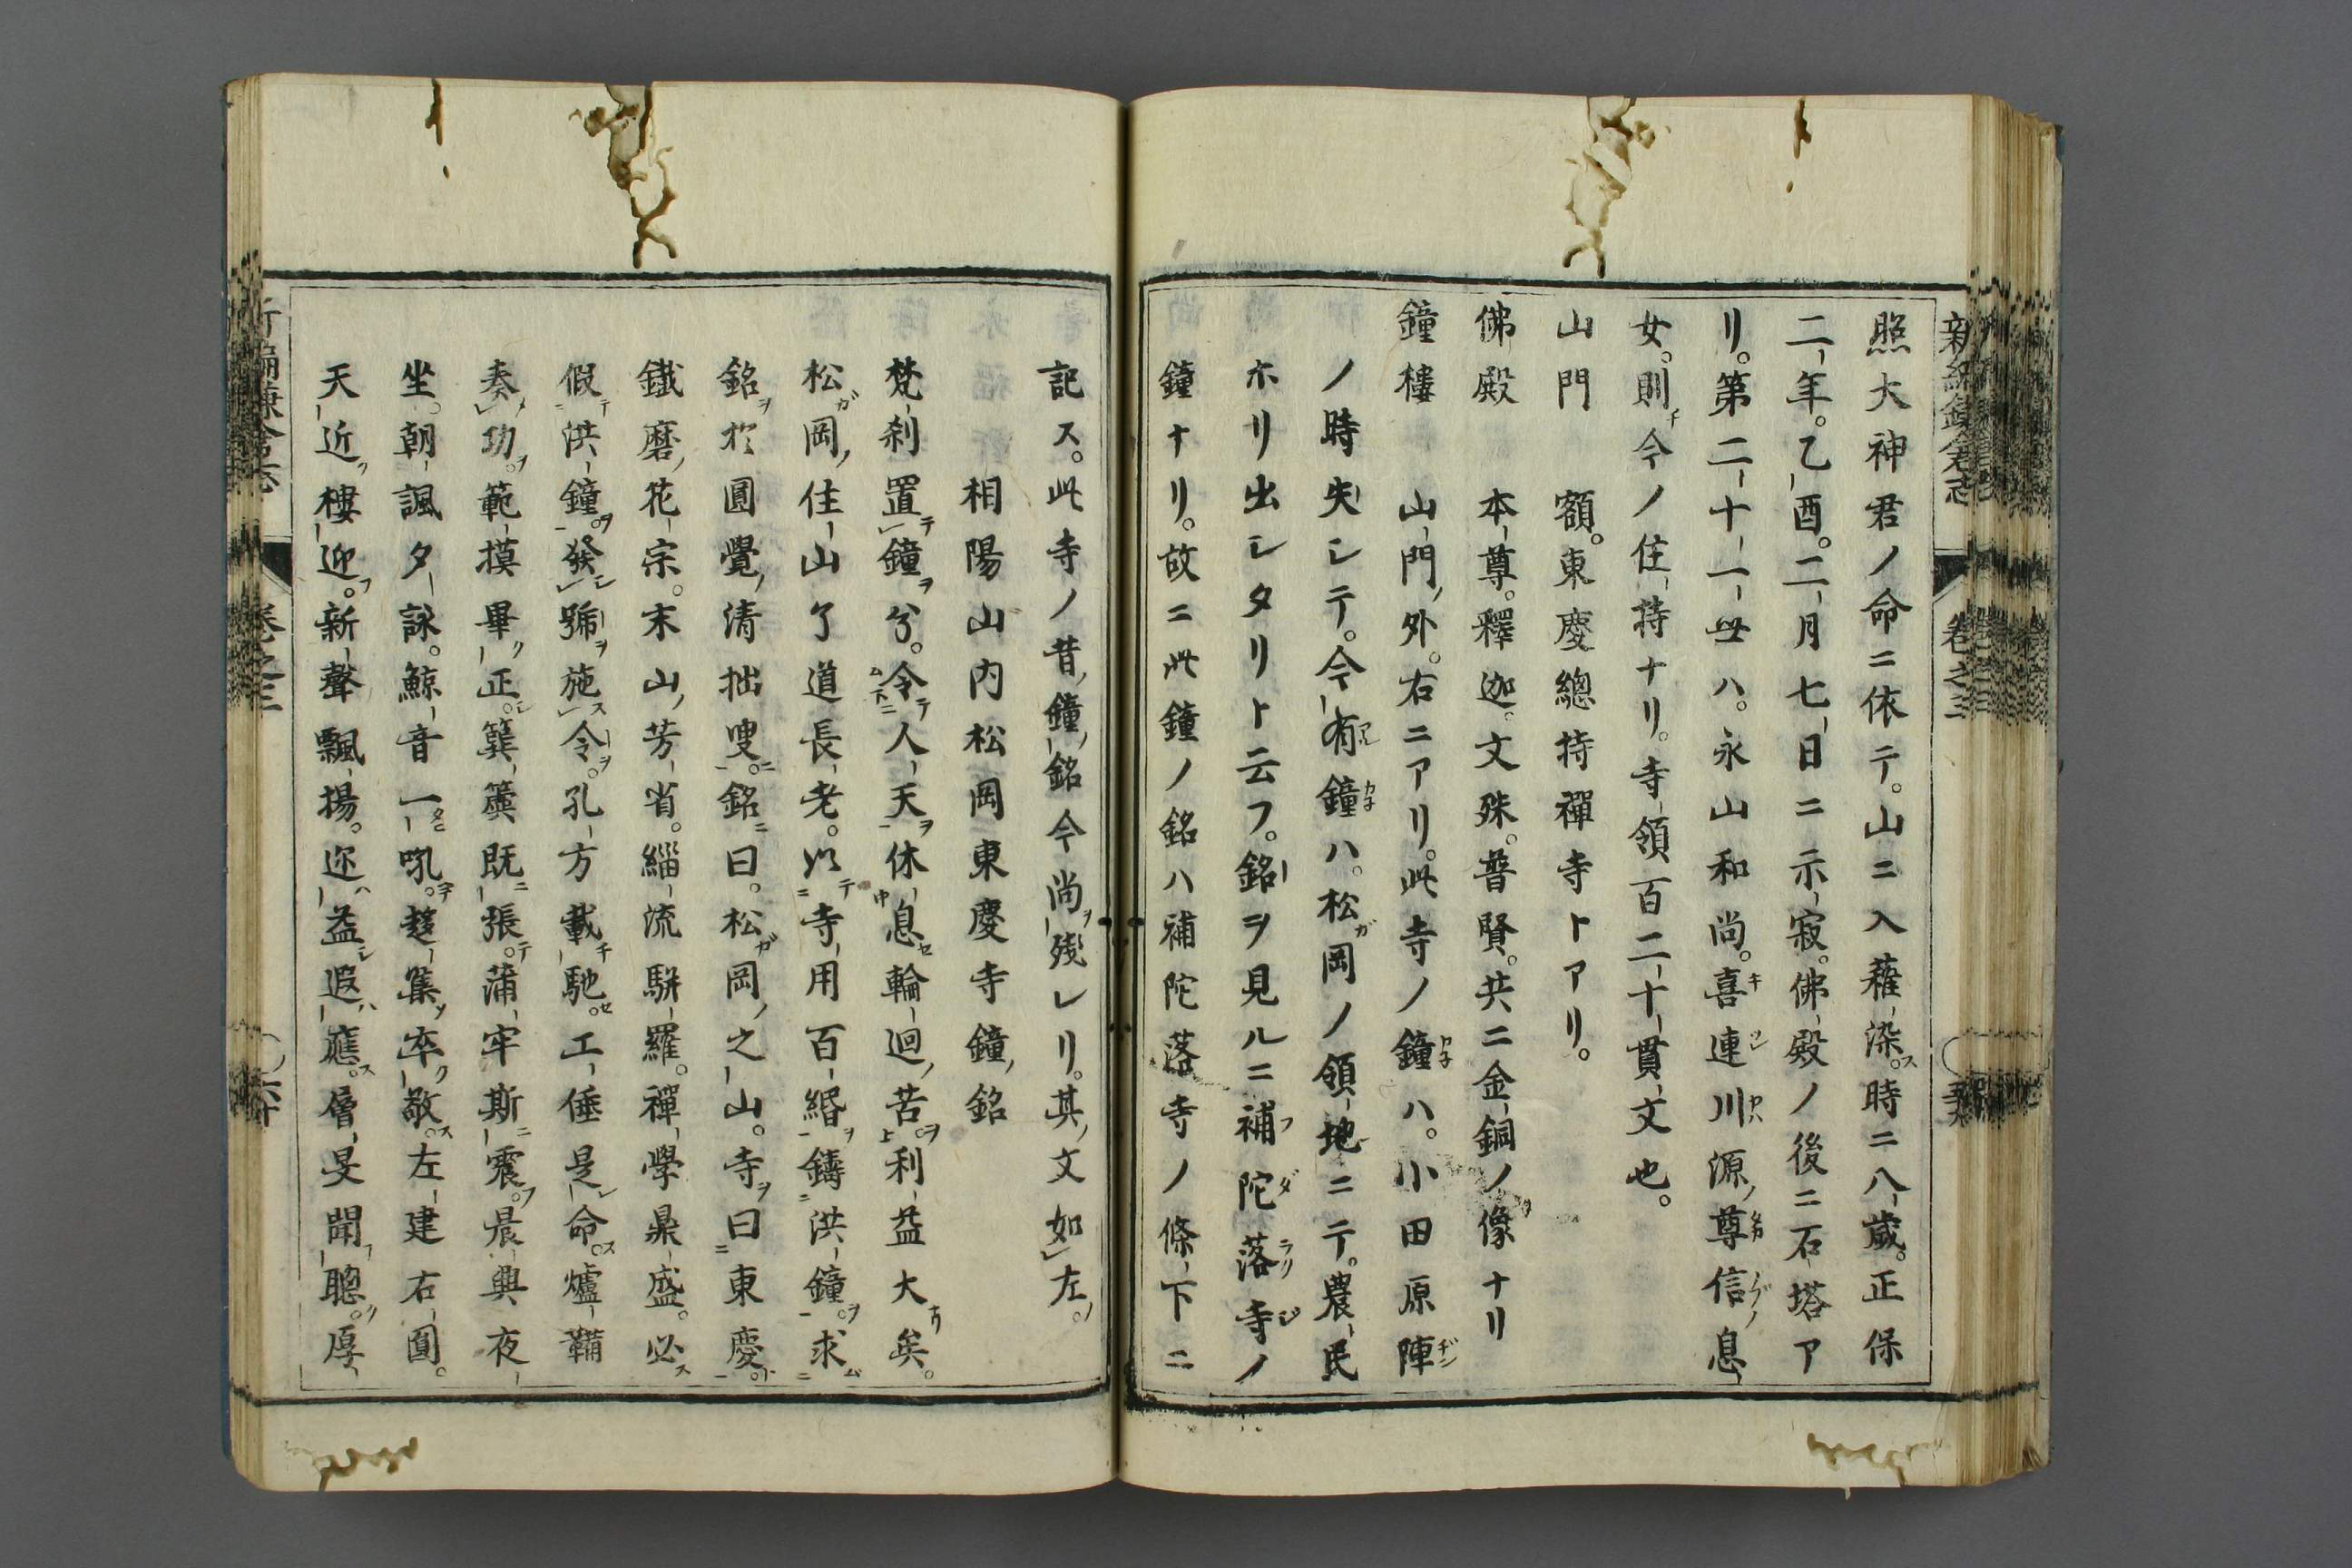 新編鎌倉志 卷之三
照大神君ノ命ニ依テ。山ニ入薙染ス。時ニ八歳。正保
二年。乙酉。二月七日ニ示寂。佛殿ノ後ニ石塔ア
リ。第二十一世ハ。永山和尚。喜連川源ノ尊信ノ息
女。則チ今ノ住持ナリ。寺領百二十貫文也。
山門 額。東慶總持禪寺トアリ。
佛殿 本尊。釋迦。文殊。普賢。共ニ金銅ノ像ナリ
鐘樓 山門ノ外。右ニアリ。此寺ノ鐘ハ。小田原陣
ノ時失シテ。今有鐘ハ。松岡ノ領地ニテ。農民
ホリ出シタリト云フ。銘ヲ見ルニ補陀落寺ノ
鐘ナリ。故ニ此鐘ノ銘ハ補陀落寺ノ條下ニ
記ス。此寺ノ昔ノ鐘ノ銘今尚ヲ殘レリ。其ノ文如左。
相陽山内松岡東慶寺鐘ノ銘
梵刹置鐘ヲ兮。令人天ヲ休息輪迴ノ苦ヲ。利益大矣。
松岡ノ住山了道長老。以寺用百緡ヲ鑄洪鐘ヲ。求
銘ヲ於圓覺ノ清拙叟ニ。銘ニ曰。松岡ノ之山。寺ヲ曰東慶。
鐵磨ノ花宗。末山ノ芳省。緇流駢羅。禪學鼎盛。必ス
假洪鐘ヲ。發號ヲ施令ヲ。孔方載馳。工倕是命ス。爐鞴
奏功ヲ。範摸畢正。簨簴既ニ張。蒲牢斯ニ震フ。晨興夜
坐。朝諷夕詠。鯨音一吼。趍集卒敬ス。左建右圓。
天近ク樓迎フ。新聲飄揚。迩益遐應ス。層旻聞聰。厚
卷之三 ○六十